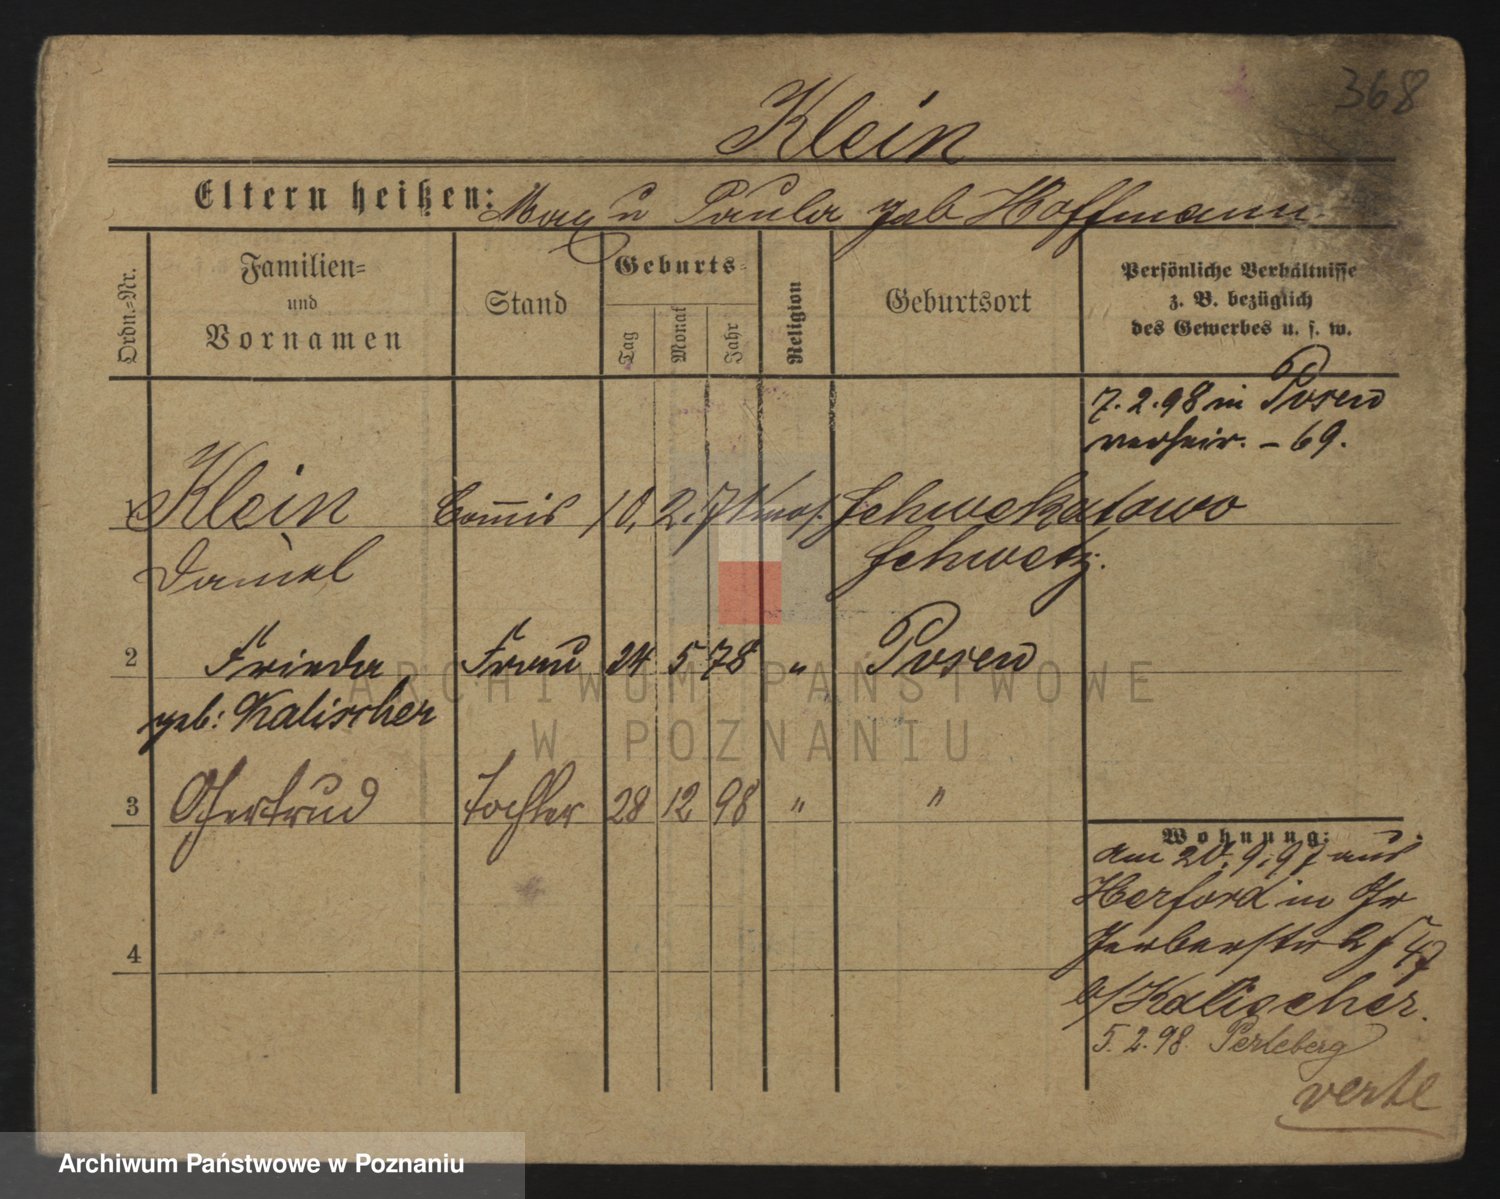 368
Klein
Eltern heißen: Max u Paula geb Hoffmann.
Ordn.=Nr.
Familien=
und
Vornamen
Stand
Geburts=
Tag
Monat
Jahr
Religion
Geburtsort
Persönliche Verhältnisse
z. B. bezüglich
des Gewerbes u. s. w.
7. 2. 98 in Posen
verheir. - 69.
1 Klein Commis 10. 2. 71 mos. Schwekatowo
Daniel Schwetz.
2 Frieda Frau 24 5 78 " Posen
geb: Kalischer
3 Gertrud Tochter 28 12 98 " "
4
Wohnung:
am 20. 9. 97 aus
Herford in Gr
Gerberstr 47
b/Kalischer.
5. 2. 98. Perleberg
verte
ARCHIWUM PAŃSTWOWE
W POZNANIU
Archiwum Państwowe w Poznaniu